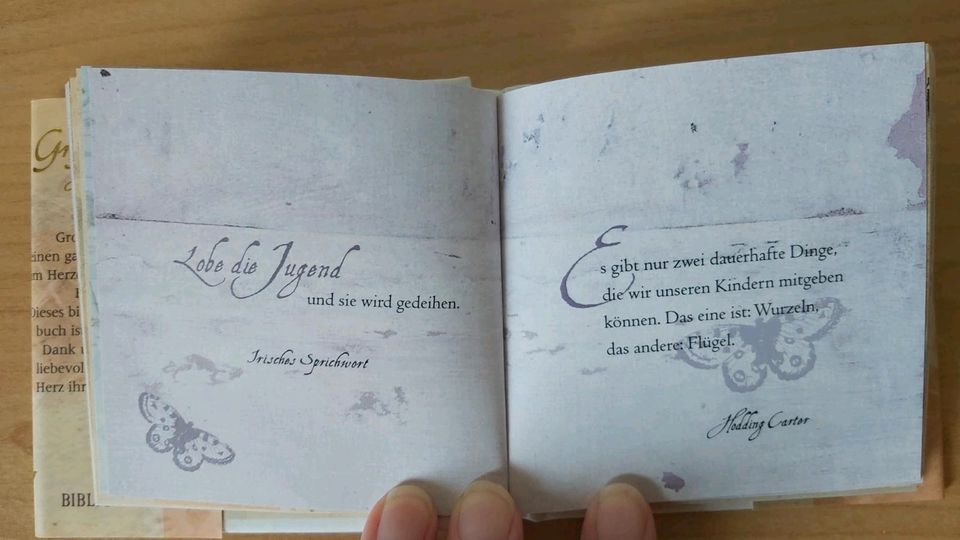 Lobe die Jugend
und sie wird gedeihen.
Irisches Sprichwort
Es gibt nur zwei dauerhafte Dinge,
die wir unseren Kindern mitgeben
können. Das eine ist: Wurzeln,
das andere: Flügel.
Hodding Carter
Gr
Gro
einen ga
m Herze
Dieses bi
buch ist
Dank u
liebevol
Herz ihr
BIBL